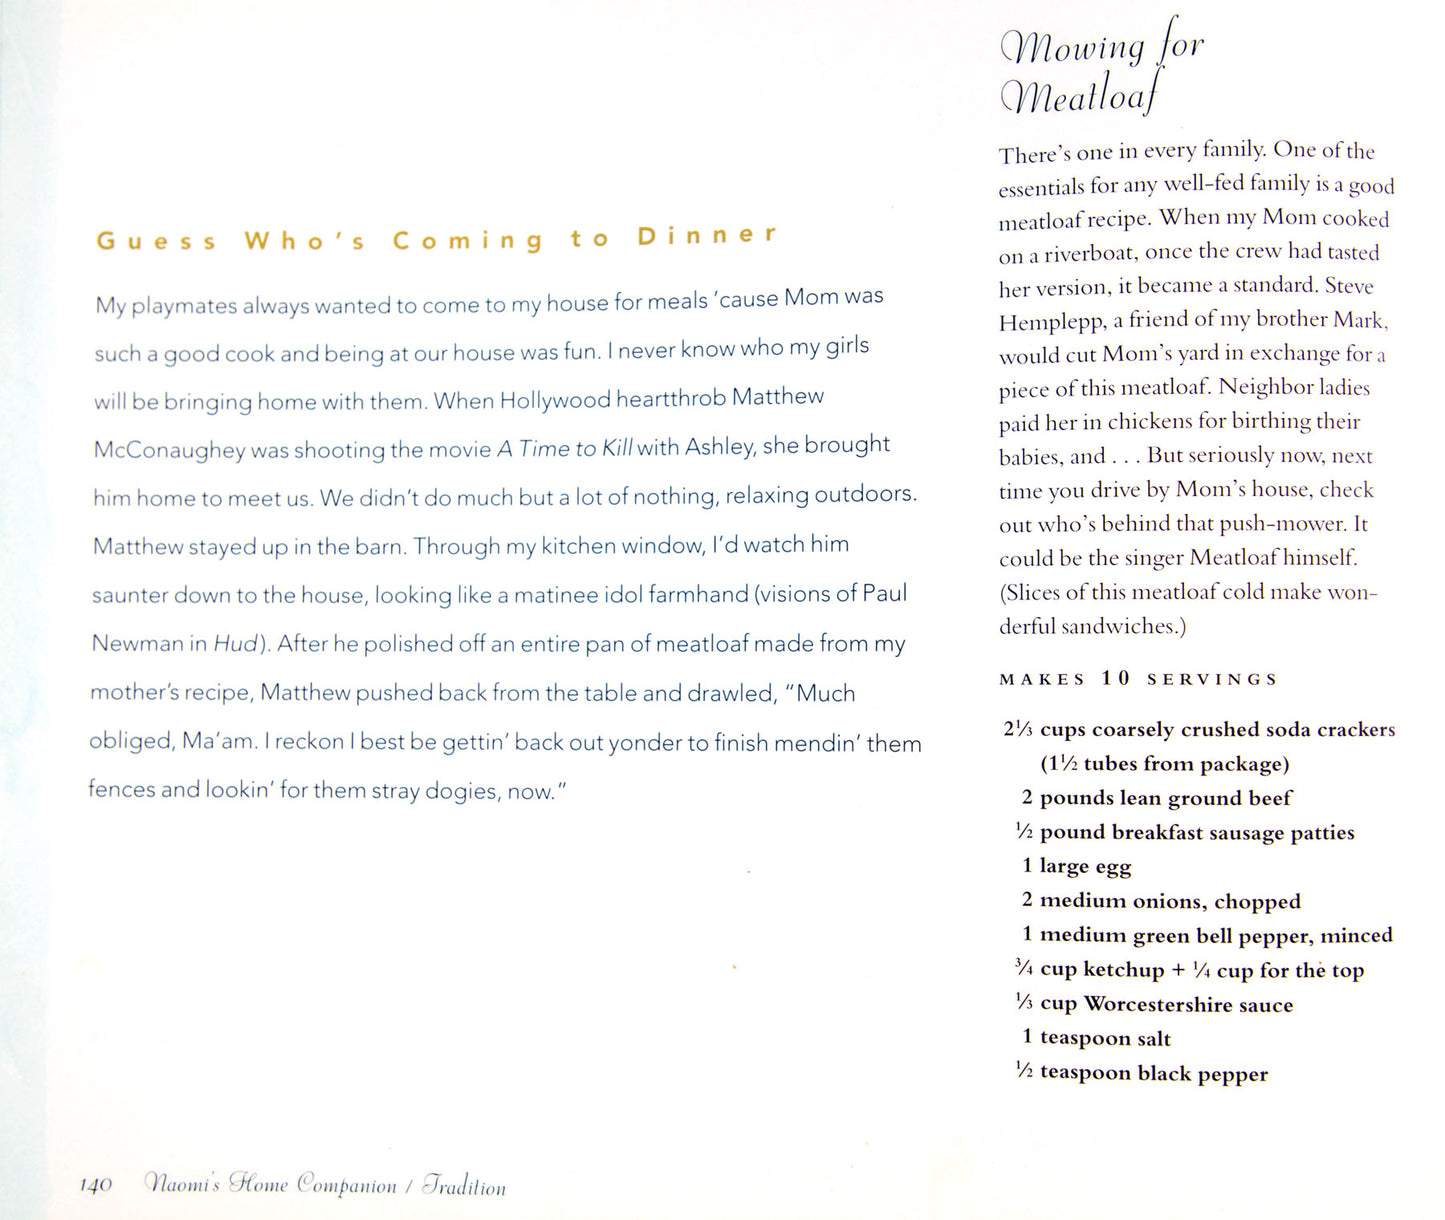 Guess Who's Coming to Dinner
My playmates always wanted to come to my house for meals 'cause Mom was
such a good cook and being at our house was fun. I never know who my girls
will be bringing home with them. When Hollywood heartthrob Matthew
McConaughey was shooting the movie A Time to Kill with Ashley, she brought
him home to meet us. We didn't do much but a lot of nothing, relaxing outdoors.
Matthew stayed up in the barn. Through my kitchen window, I'd watch him
saunter down to the house, looking like a matinee idol farmhand (visions of Paul
Newman in Hud). After he polished off an entire pan of meatloaf made from my
mother's recipe, Matthew pushed back from the table and drawled, "Much
obliged, Ma'am. I reckon I best be gettin' back out yonder to finish mendin' them
fences and lookin' for them stray dogies, now."
Mowing for
Meatloaf
There's one in every family. One of the
essentials for any well-fed family is a good
meatloaf recipe. When my Mom cooked
on a riverboat, once the crew had tasted
her version, it became a standard. Steve
Hemplepp, a friend of my brother Mark,
would cut Mom's yard in exchange for a
piece of this meatloaf. Neighbor ladies
paid her in chickens for birthing their
babies, and . . . But seriously now, next
time you drive by Mom's house, check
out who's behind that push-mower. It
could be the singer Meatloaf himself.
(Slices of this meatloaf cold make won-
derful sandwiches.)
MAKES 10 SERVINGS
2⅓ cups coarsely crushed soda crackers
(1½ tubes from package)
2 pounds lean ground beef
½ pound breakfast sausage patties
1 large egg
2 medium onions, chopped
1 medium green bell pepper, minced
¾ cup ketchup + ¼ cup for the top
⅓ cup Worcestershire sauce
1 teaspoon salt
½ teaspoon black pepper
140 Naomi's Home Companion / Tradition